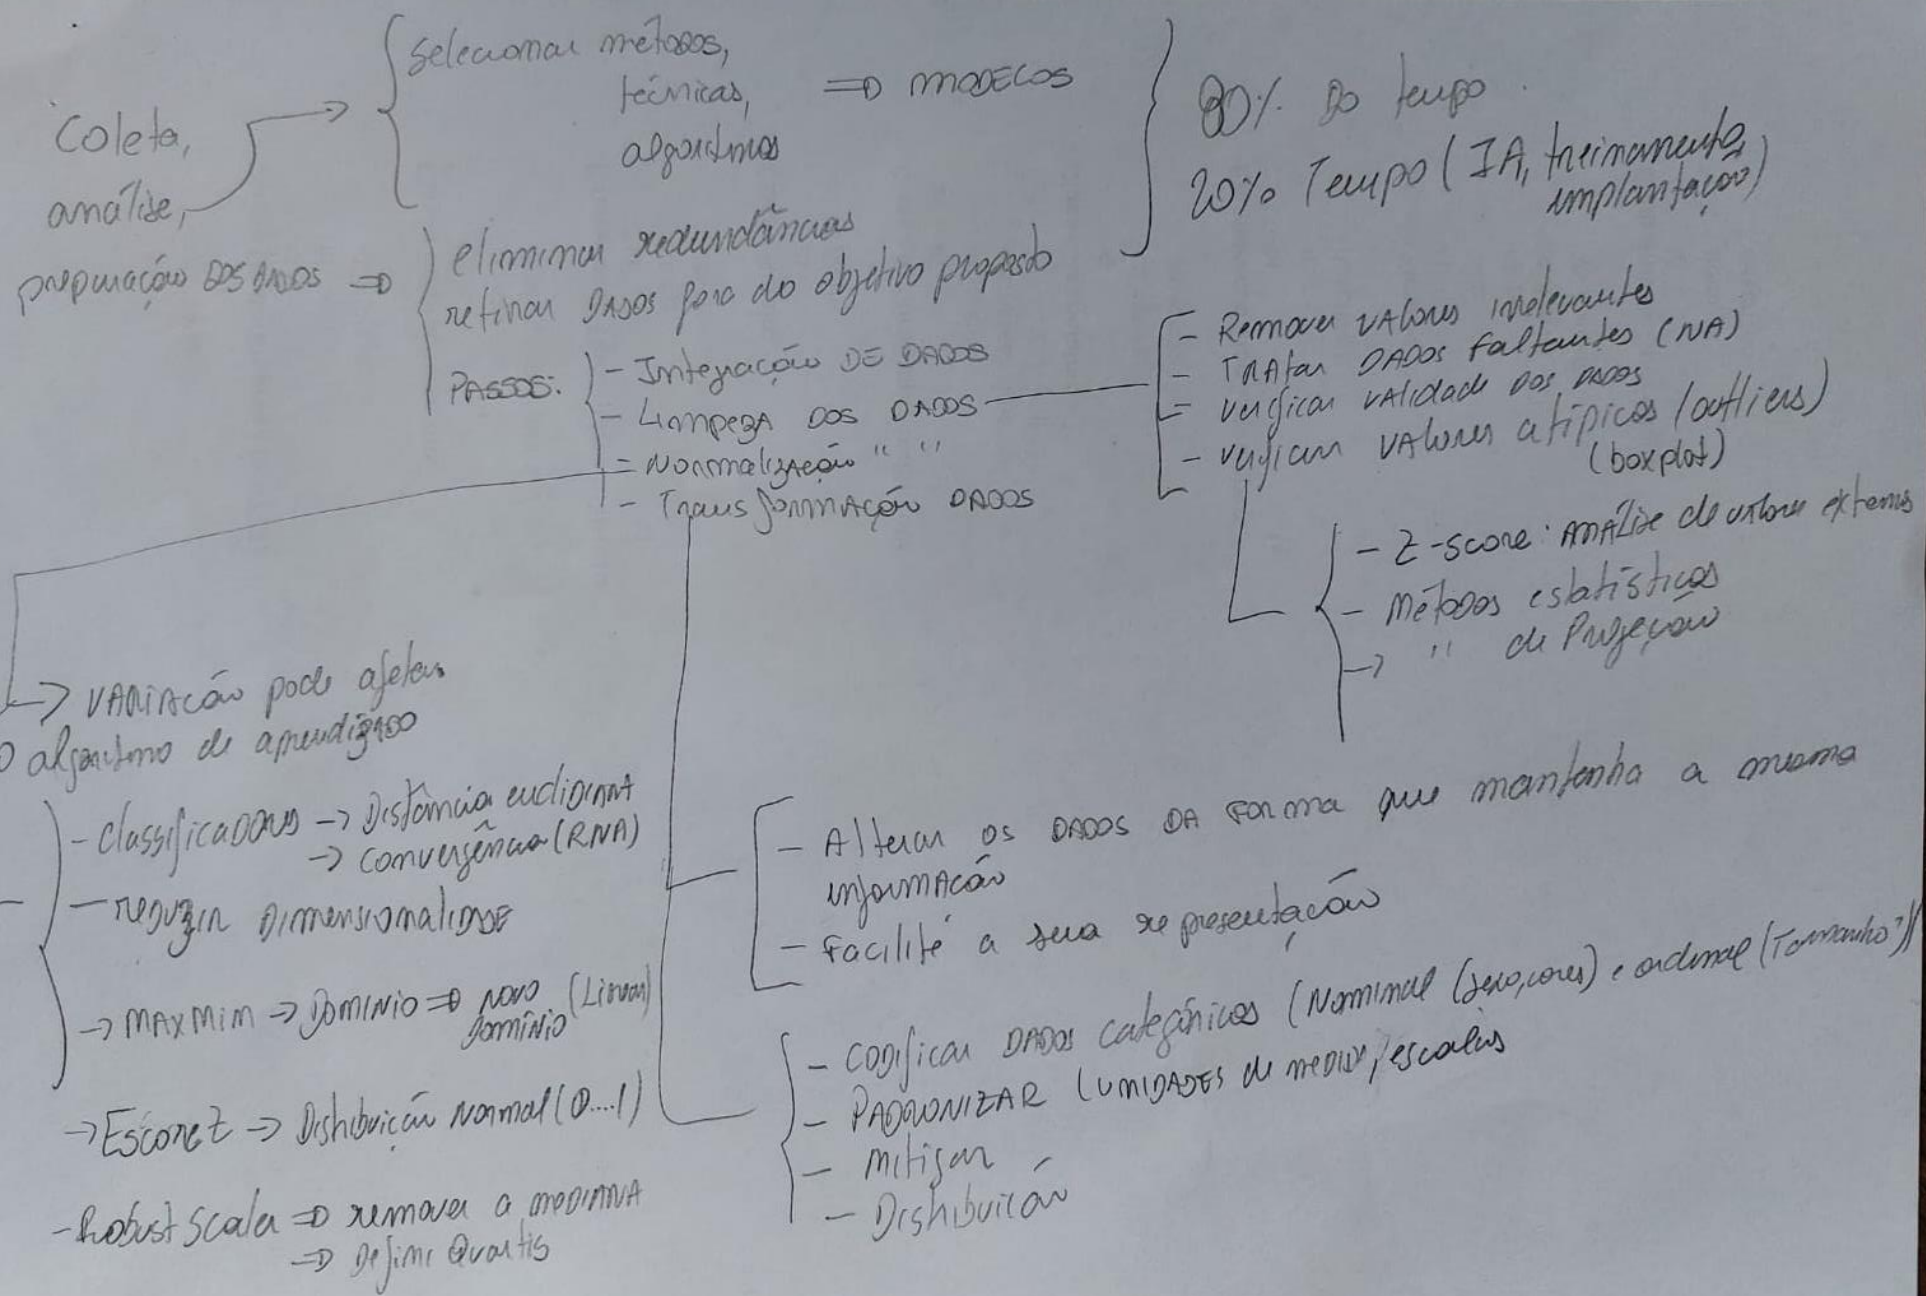 Coleta,
análise,
preparação DOS DADOS ⇒
selecionar métodos,
técnicas,
algoritmos
⇒ MODELOS
80% Do tempo
20% Tempo (IA, treinamento,
implantação)
eliminar redundâncias
retirar DADOS fora do objetivo proposto
PASSOS:
- Integração DE DADOS
- Limpeza DOS DADOS
- Normalização " "
- Transformação DADOS
- Remover valores irrelevantes
- Tratar DADOS faltantes (NA)
- verificar validade DOS DADOS
- verificar valores atípicos (outliers)
(boxplot)
- Z-score: Análise de valores extremos
- Métodos estatísticos
→ " de Projeção
→ VARIAÇÃO pode afetar
O algoritmo de aprendizado
- Classificadores → Distância euclidiana
→ Convergência (RNA)
- reduzir DimensionaliDADE
→ MAXMIM → DOMINIO ⇒ NOVO (Linear)
DOMÍNIO
→ Escore Z → Distribuição Normal (0....1)
- Robust Scaler ⇒ remover a MEDIANA
⇒ Definir Quartis
- Alterar os DADOS DA FORMA que mantenha a mesma
informação
- Facilite a sua representação
- CODIficar DADOS categóricos (Nominal (sexo, cores) e ordinal (Tamanho))
- PADRONIZAR (UNIDADES de medida, escalas
- Mitigar
- Distribuição